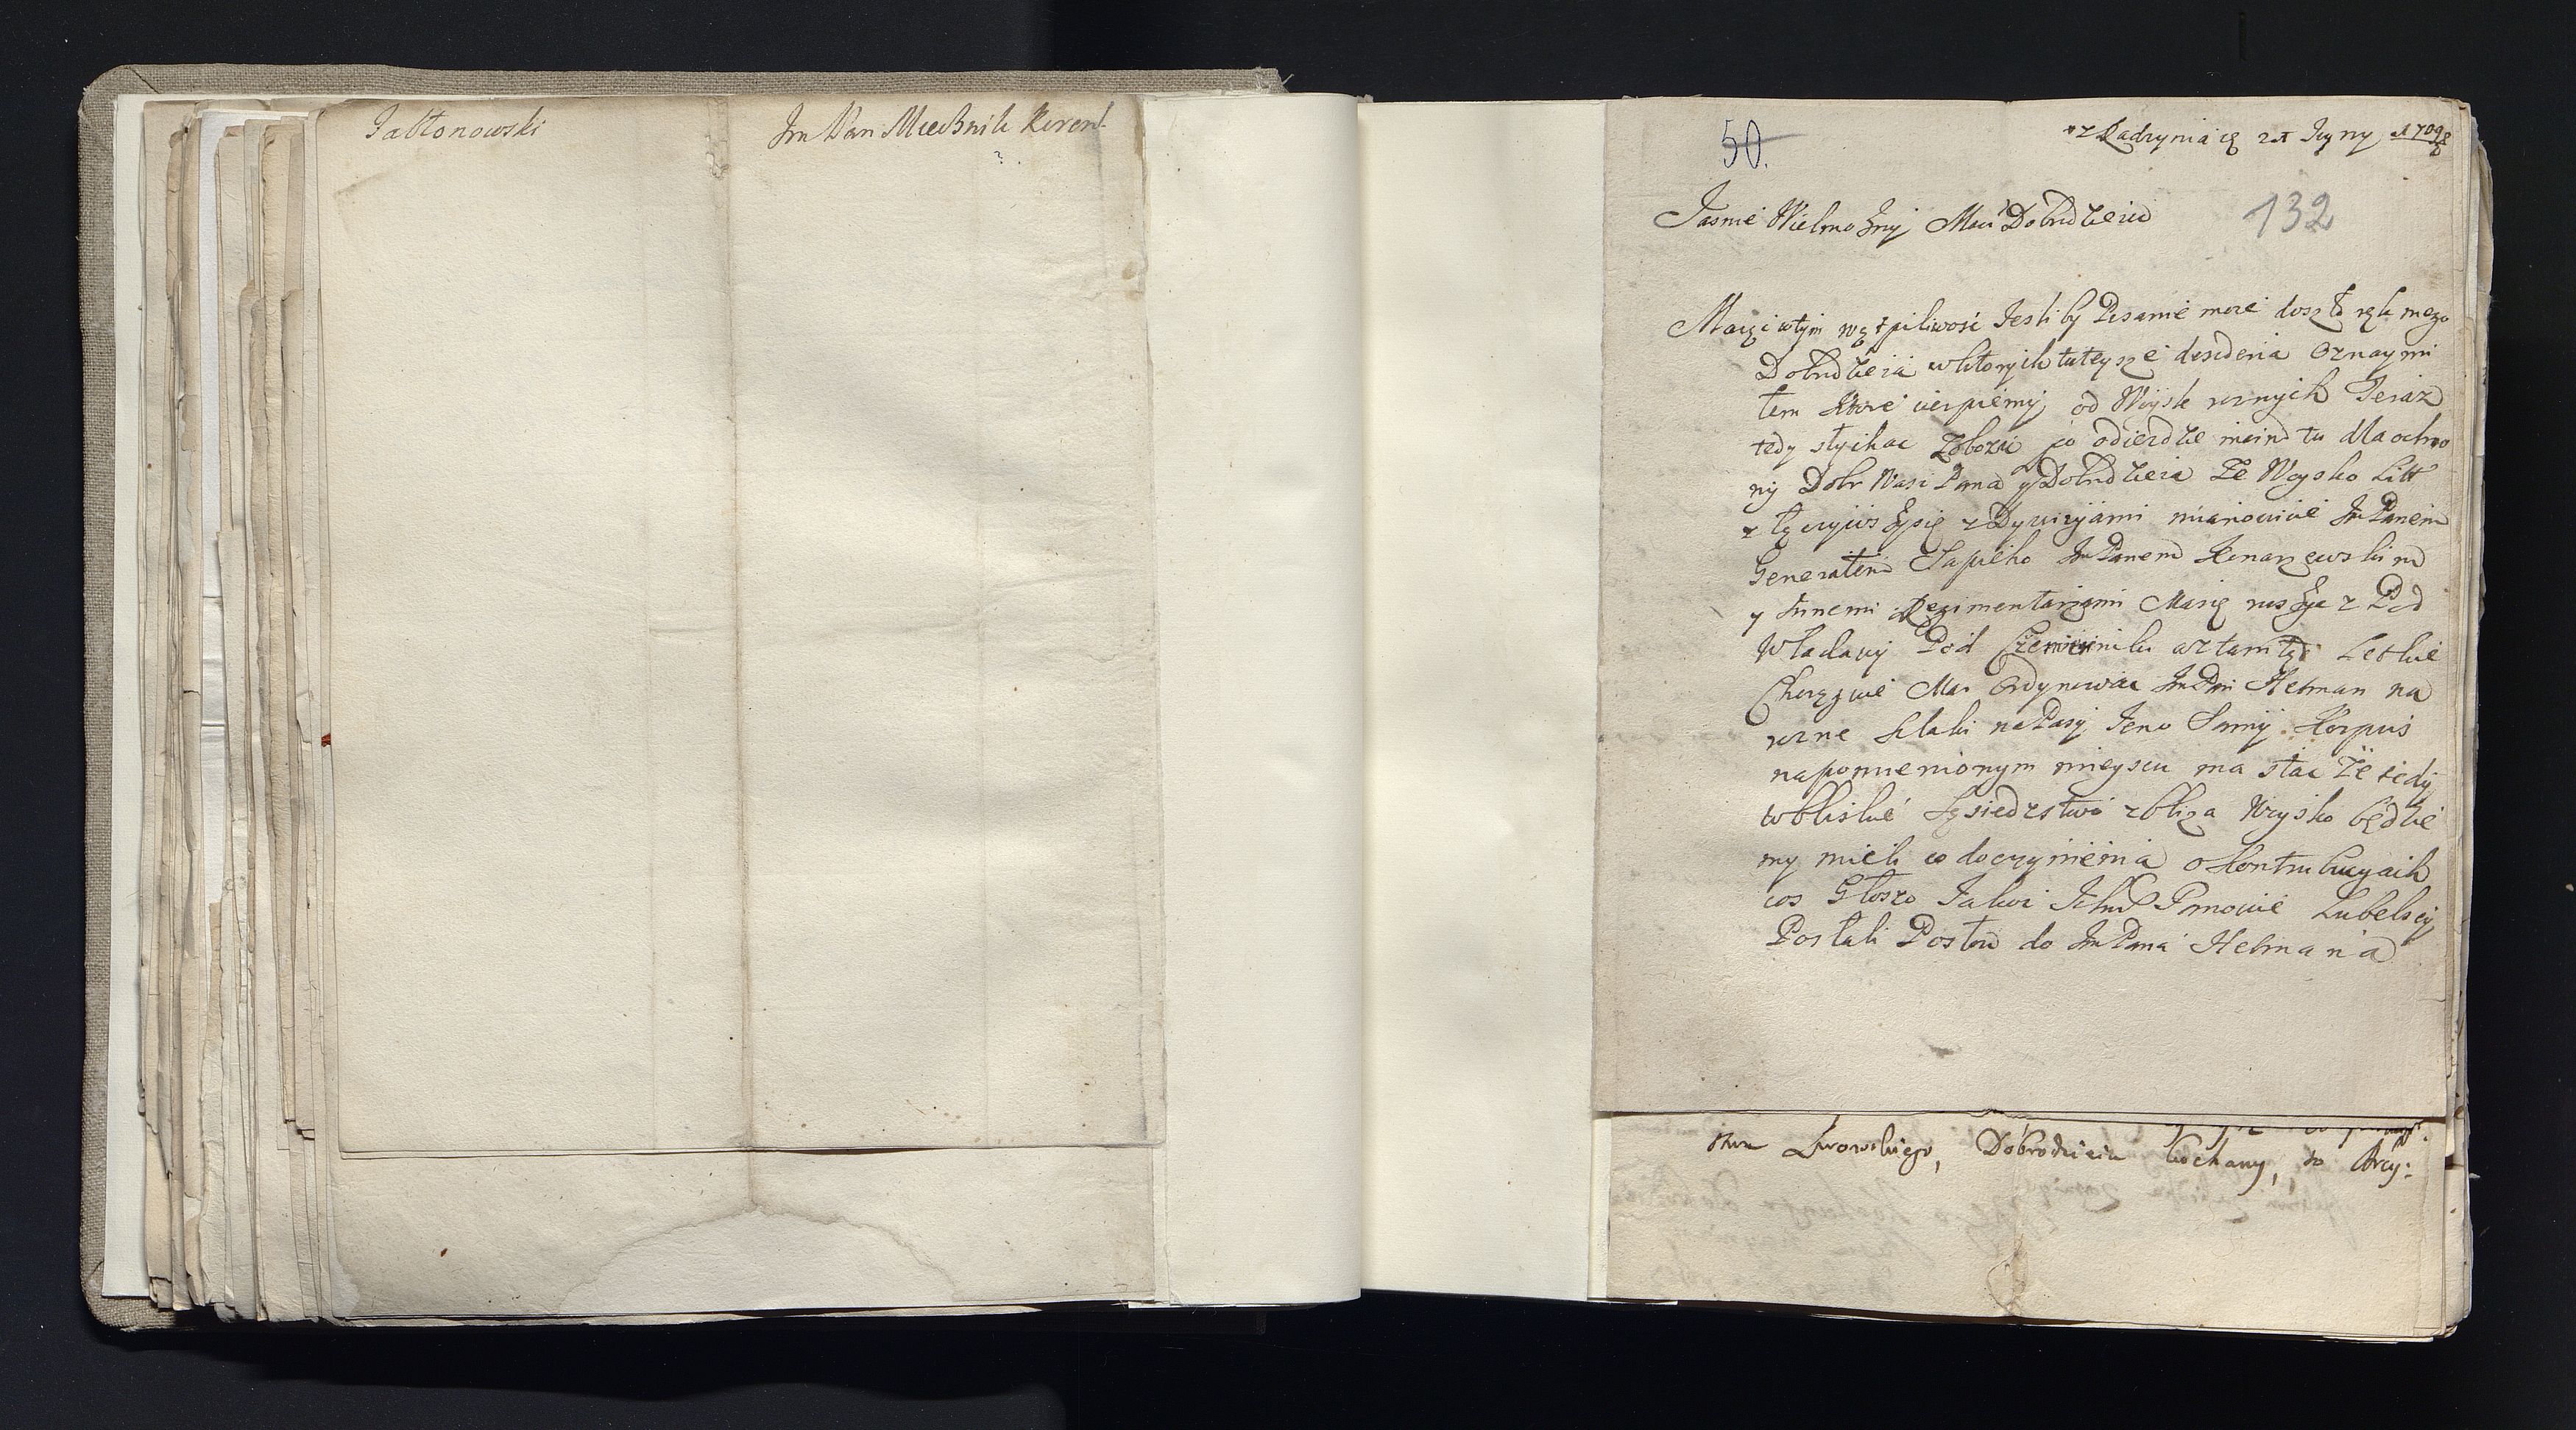 Jabłonowski
Im Pan Miecznik Koron.
50.
z Radzynia 21 1709
132
Jasnie Wielmozny Mosci Dobrodzieiu
Maiąc w tym wątpiliwosc Iesliby Pisanie moie doszło rąk mego
Dobrodzieia w ktorych tuteysze desideria Oznaymi
łem ktore cierpiemy od Woysk roznych Teraz
tedy słychac Zobozu po odiezdzie moim tu dla ochro
ny Dobr Wasz Pana y Dobrodzieia Ze Woysko Litt
złączywszy się z Dywizyiami mianowicie Im Panem
Generałem Sapieho Im Panem Kenarzewskim
y Innemi Regimentarzami Ma się ruszyc z Pod
Wladawy Pod Czemierniki a ztamtąd Letkie
Chorągwie Ma Ordynowac Im Pan Hetman na
rozne Szlaki na Pasy Ieno Samy Korpus
na pomienionym mieyscu ma stac Ze tedy
w bliskie Sąsiedztwo zbliza Woysko będzie
my mieli co do czynienia o Kontrubucyach
cos Głoszo Iakoz Ichm Panowie Lubelscy
Posłali Posłow do Im Pana Hetmana
Lwowskiego, Dobrodzieia kochany, to Arcy: